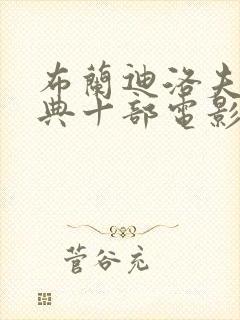 布蘭迪洛夫
典十部電影
菅谷充